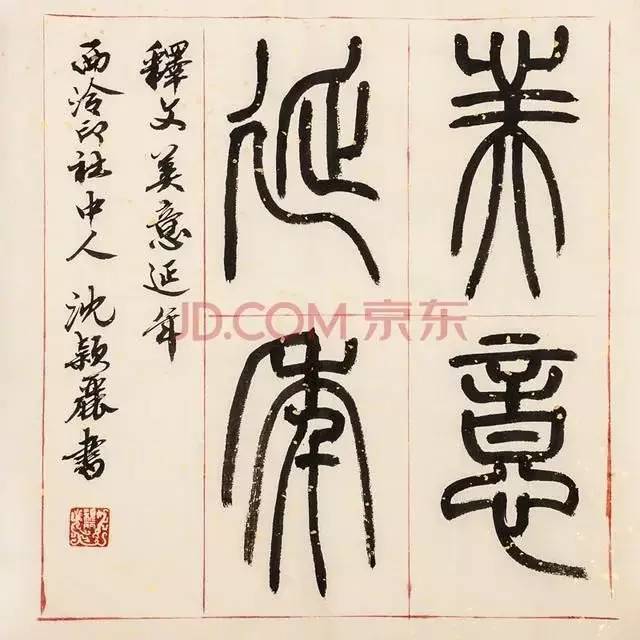 美意
延年
釋文美意延年
西泠印社中人沈穎麗書
JD.COM 京东